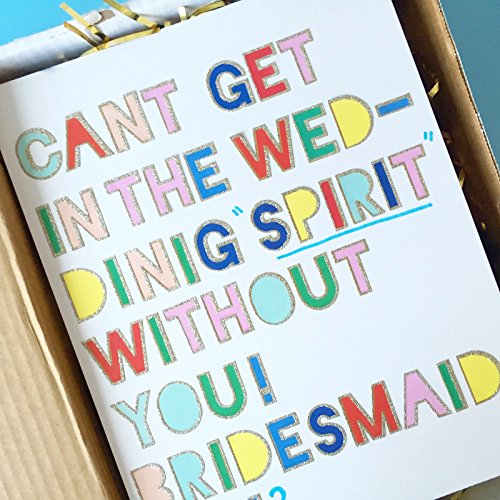 CANT GET
IN THE WED-
DINIG "SPIRIT"
WITHOUT
YOU!
BRIDESMAID
?